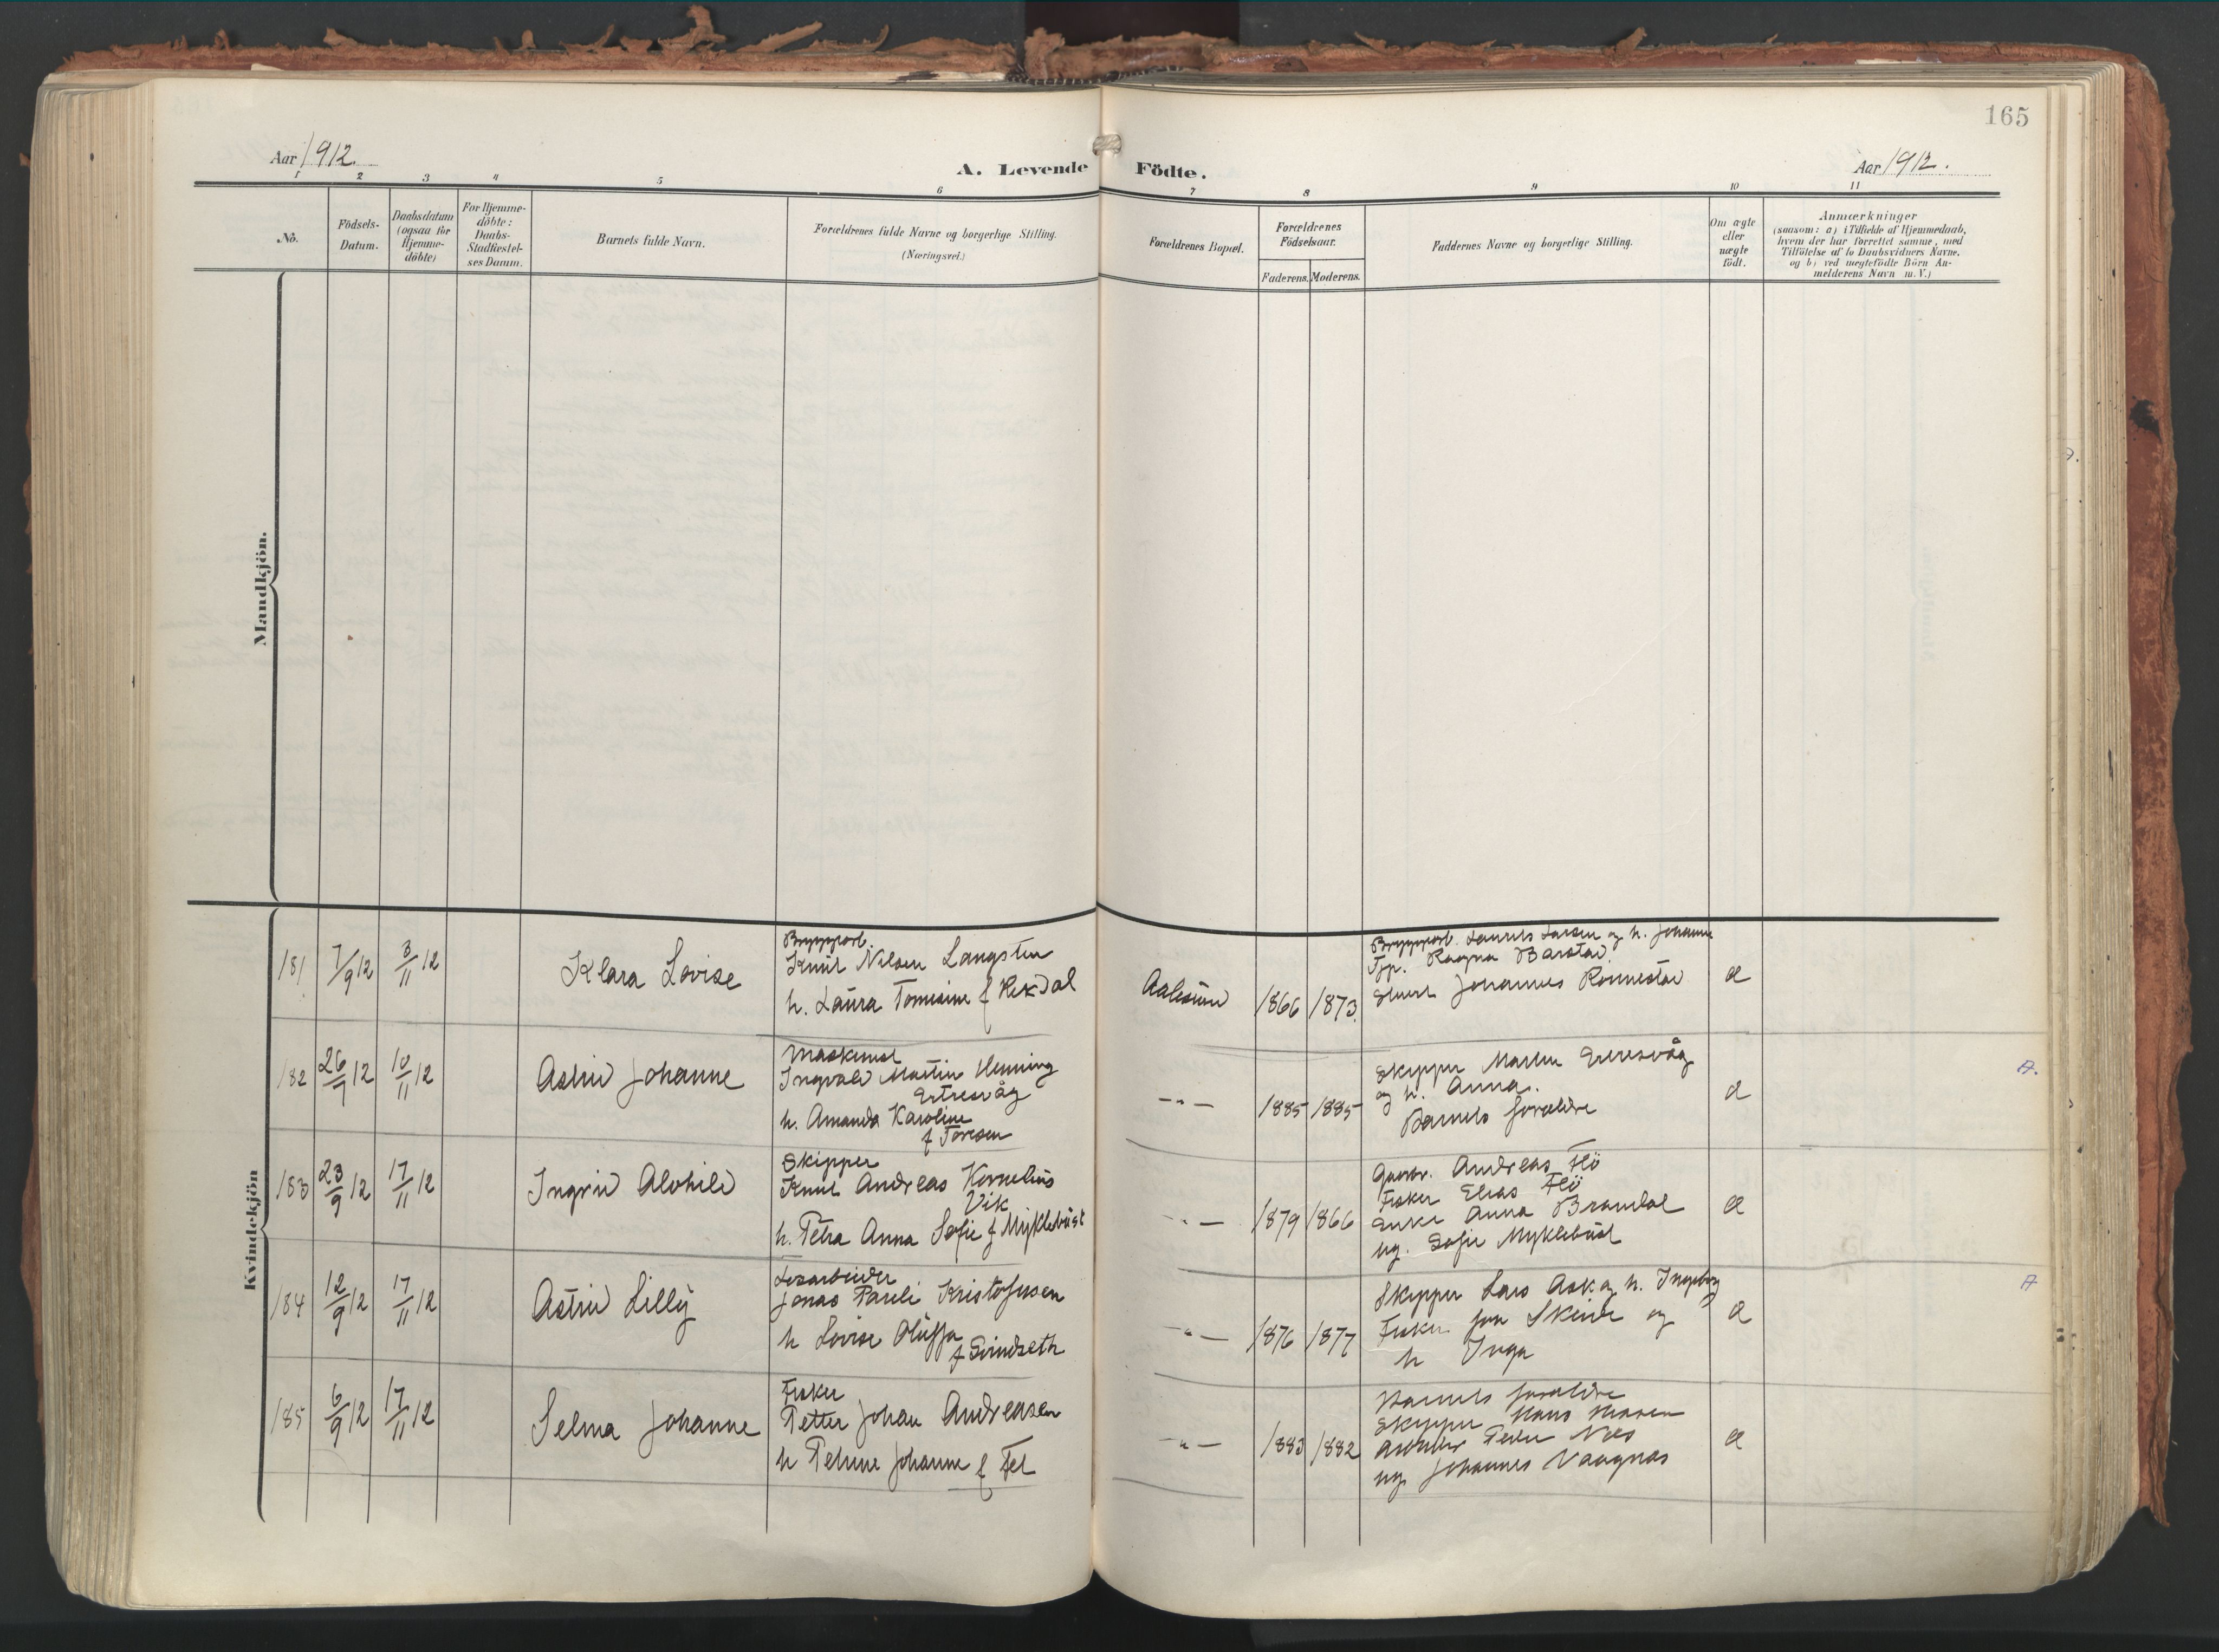 165
Aar 1912.
A. Levende Födte.
Aar 1912.
1 2 3 4 5 6 7 8 9 10 11
No.
Födsels-
Datum.
Daabsdatum
(ogsaa for
Hjemme-
döbte)
For Hjemme-
döbte:
Daabs-
Stadfæstel-
ses Datum.
Barnets fulde Navn.
Forældrenes fulde Navne og borgerlige Stilling.
(Næringsvei.)
Forældrenes Bopæl.
Forældrenes
Födselsaar.
Faderens. Moderens.
Faddernes Navne og borgerlige Stilling.
Om ægte
eller
uægte
födt.
Anmærkninger
(saasom: a) i Tilfælde af Hjemmedaab,
hvem der har forrettet samme, med
Tilföielse af to Daabsvidners Navne,
og b) ved uægtefödte Börn An-
melderens Navn m. V.)
Mandkjön.
Kvindekjön
181 7/9 12 3/11 12
Klara Lovise
Bryggearb.
Knut Nilsen Langsten
h. Laura Tomesine f Rekdal
Aalesund
1866 1873.
Bryggearb. Laurits Larsen og h. Johanne
Ragna Barstad
Johannes Rönnestad
182 26/9 12 10/11 12
Astrid Johanne
Maskinist
Ingvald Martin Henning
Ertresvåg
h. Amanda Karoline
f Toresen
-"-
1885 1885
Skipper Martin Ertresvåg
og h. Anna.
Barnets forældre
A.
183 23/9 12 17/11 12
Ingrid Alvhild
Skipper
Knut Andreas Kornelius
Vik
h. Petra Anna Sofie f Myklebust
-"-
1879 1866
Gaardbr. Andreas Flö
Fisker Elias Flö
Enke Anna Brandal
ug. Sofie Myklebust
184 12/9 12 17/11 12
Astrid Lilly
Løsarbeider
Jonas Pauli Kristofersen
h Lovise Oluffa
f Svindseth
-"-
1876 1877
Skipper Lars Ask og h. Ingeborg
Fisker Jon Skeide og
h Inga
A
185 6/9 12 17/11 12
Selma Johanne
Fisker
Petter Johan Andreasen
h Petrine Johanne f Fet
-"-
1883 1882
Barnets forældre
Skipper Hans Hansen
Arbeider Peder Nås
ug. Johannes Vaagnæs